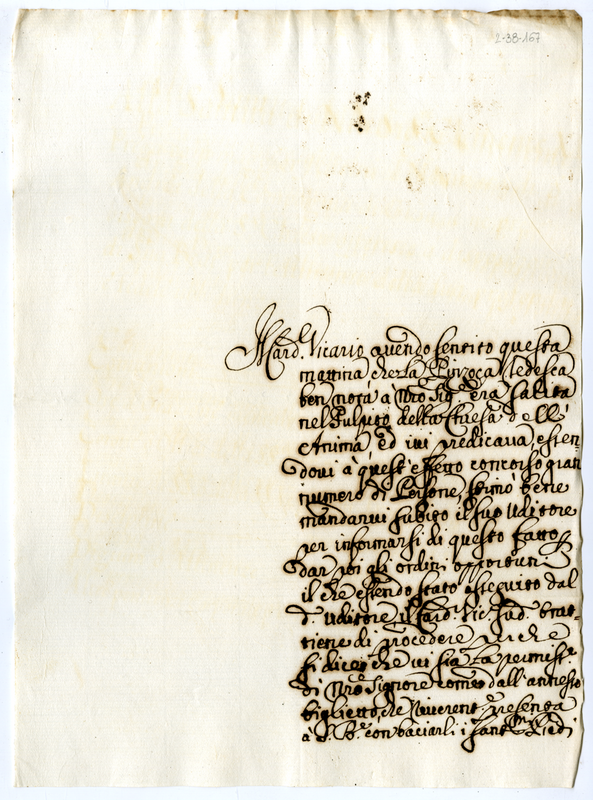 2-38-167
Il Card. Vicario avendo sentito questa
mattina che la Pinzoca Tedesca
ben nota a Nro Sig.re era salita
nel Pulpito della Chiesa dell'
Anima, ed ivi predicava, essen
dovi à quest'effetto concorso gran
numero di Persone, stimò bene
mandarvi subito il suo Uditore
per informarsi di questo fatto, e
dar poi gli ordini opportuni
il che essendo stato esseguito dal
d.o Uditore, il Card. Vic.
tiene di procedere perche
si dice, che vi sia la permiss.e
di Nro Signore come dall'annesso
biglietto, che Riverent.e presenta
à S. B.e con baciarli i Sant.mi Piedi